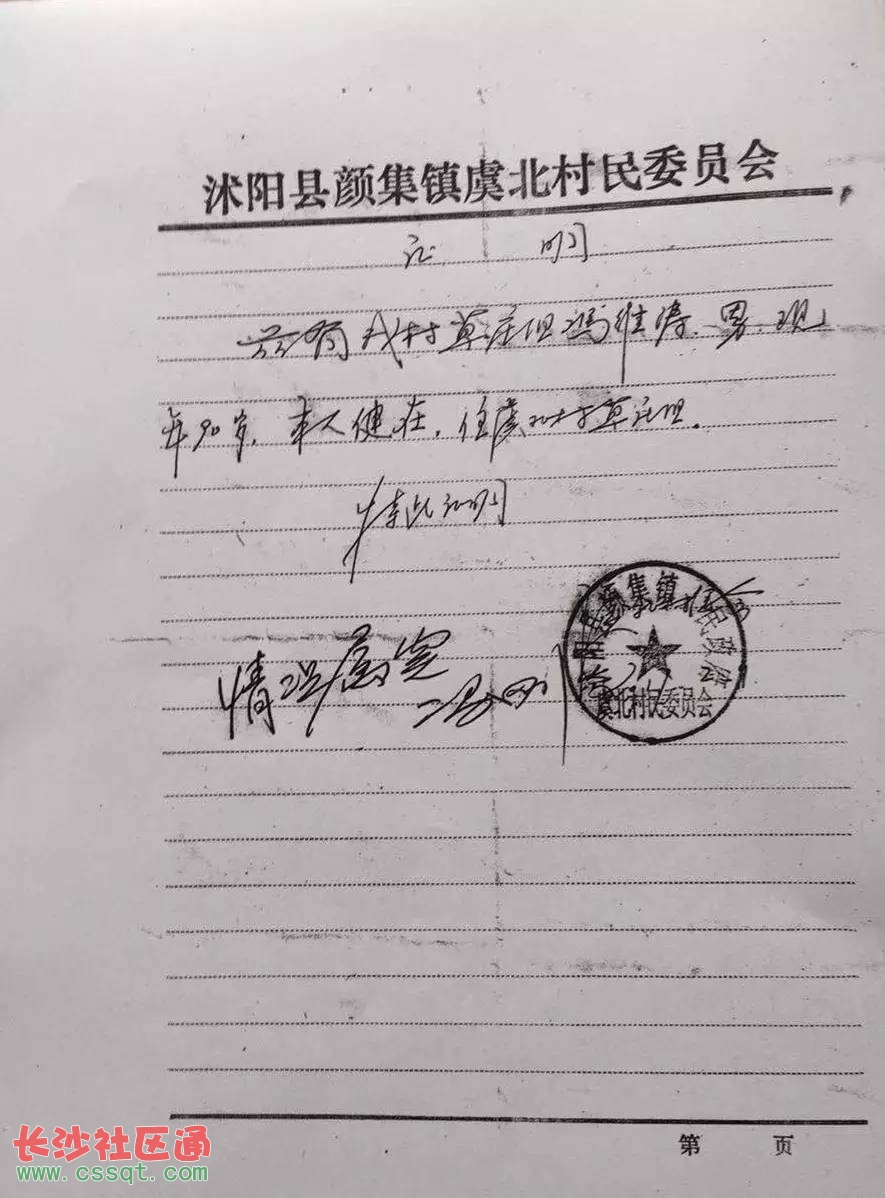 沭阳县颜集镇虞北村民委员会
证 明
兹有我村草庄组冯维涛.男.现
年90岁，本人健在，住虞北村草庄组.
特此证明
情况属实
冯
颜集镇人民政府
虞北村民委员会
第 页
长沙社区通
www.cssqt.com